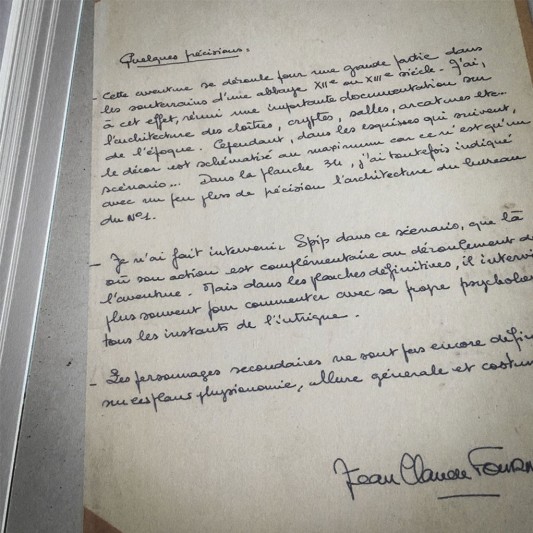 Quelques précisions.
- Cette aventure se déroule pour une grande partie dans
les souterrains d'une abbaye XIIe ou XIIIe siècle. J'ai,
à cet effet, réuni une importante documentation sur
l'architecture des cloîtres, cryptes, salles, arcatures etc..
de l'époque. Cependant, dans les esquisses qui suivent,
le décor est schématisé au maximum car ce n'est qu'un
scénario... Dans la planche 34, j'ai toutefois indiqué
avec un peu plus de précision l'architecture du bureau
du N°1.
- Je n'ai fait intervenir Spip dans ce scénario, que là
où son action est complémentaire au déroulement d
l'aventure. Mais dans les planches définitives, il intervi
plus souvent pour commenter avec sa propre psycholo
tous les instants de l'intrigue.
- Les personnages secondaires ne sont pas encore défin
sur ces plans physionomie, allure générale et costum
Jean Claude Fourn